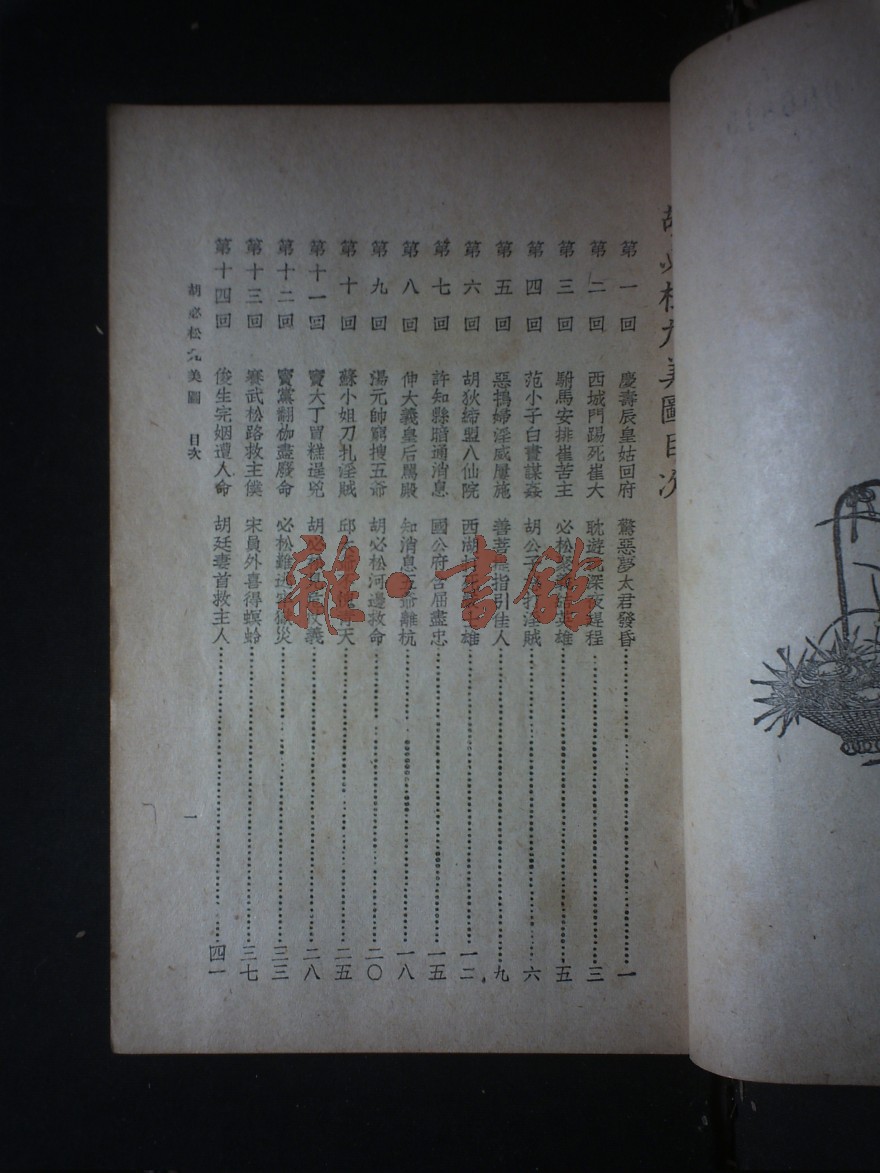 胡必松九美圖目次
第一回 慶壽辰皇姑回府 驚惡夢太君發昏 一
第二回 西城門踢死崔大 耽遊玩深夜趕程 三
第三回 駙馬安排崔苦主 必松 英雄 五
第四回 范小子白晝謀姦 胡公子 打淫賊 六
第五回 惡鴇婦淫威屢施 善菩 指引佳人 九
第六回 胡狄締盟八仙院 西湖 雄 一二
第七回 許知縣暗通消息 國公府合屈盡忠 一五
第八回 伸大義皇后罵殿 知消息五爺離杭 一八
第九回 湯元帥窮搜五爺 胡必松河邊救命 二〇
第十回 蘇小姐刀扎淫賊 邱 天 二五
第十一回 竇大丁買糕逞兇 胡必松 仗義 二八
第十二回 竇黨翻枷盡廢命 必松難逃牢獄災 三三
第十三回 賽武松路救主僕 宋員外喜得螟蛉 三七
第十四回 俊生完姻遭人命 胡廷妻首救主人 四一
胡必松九美圖 目次
一
雜·書館